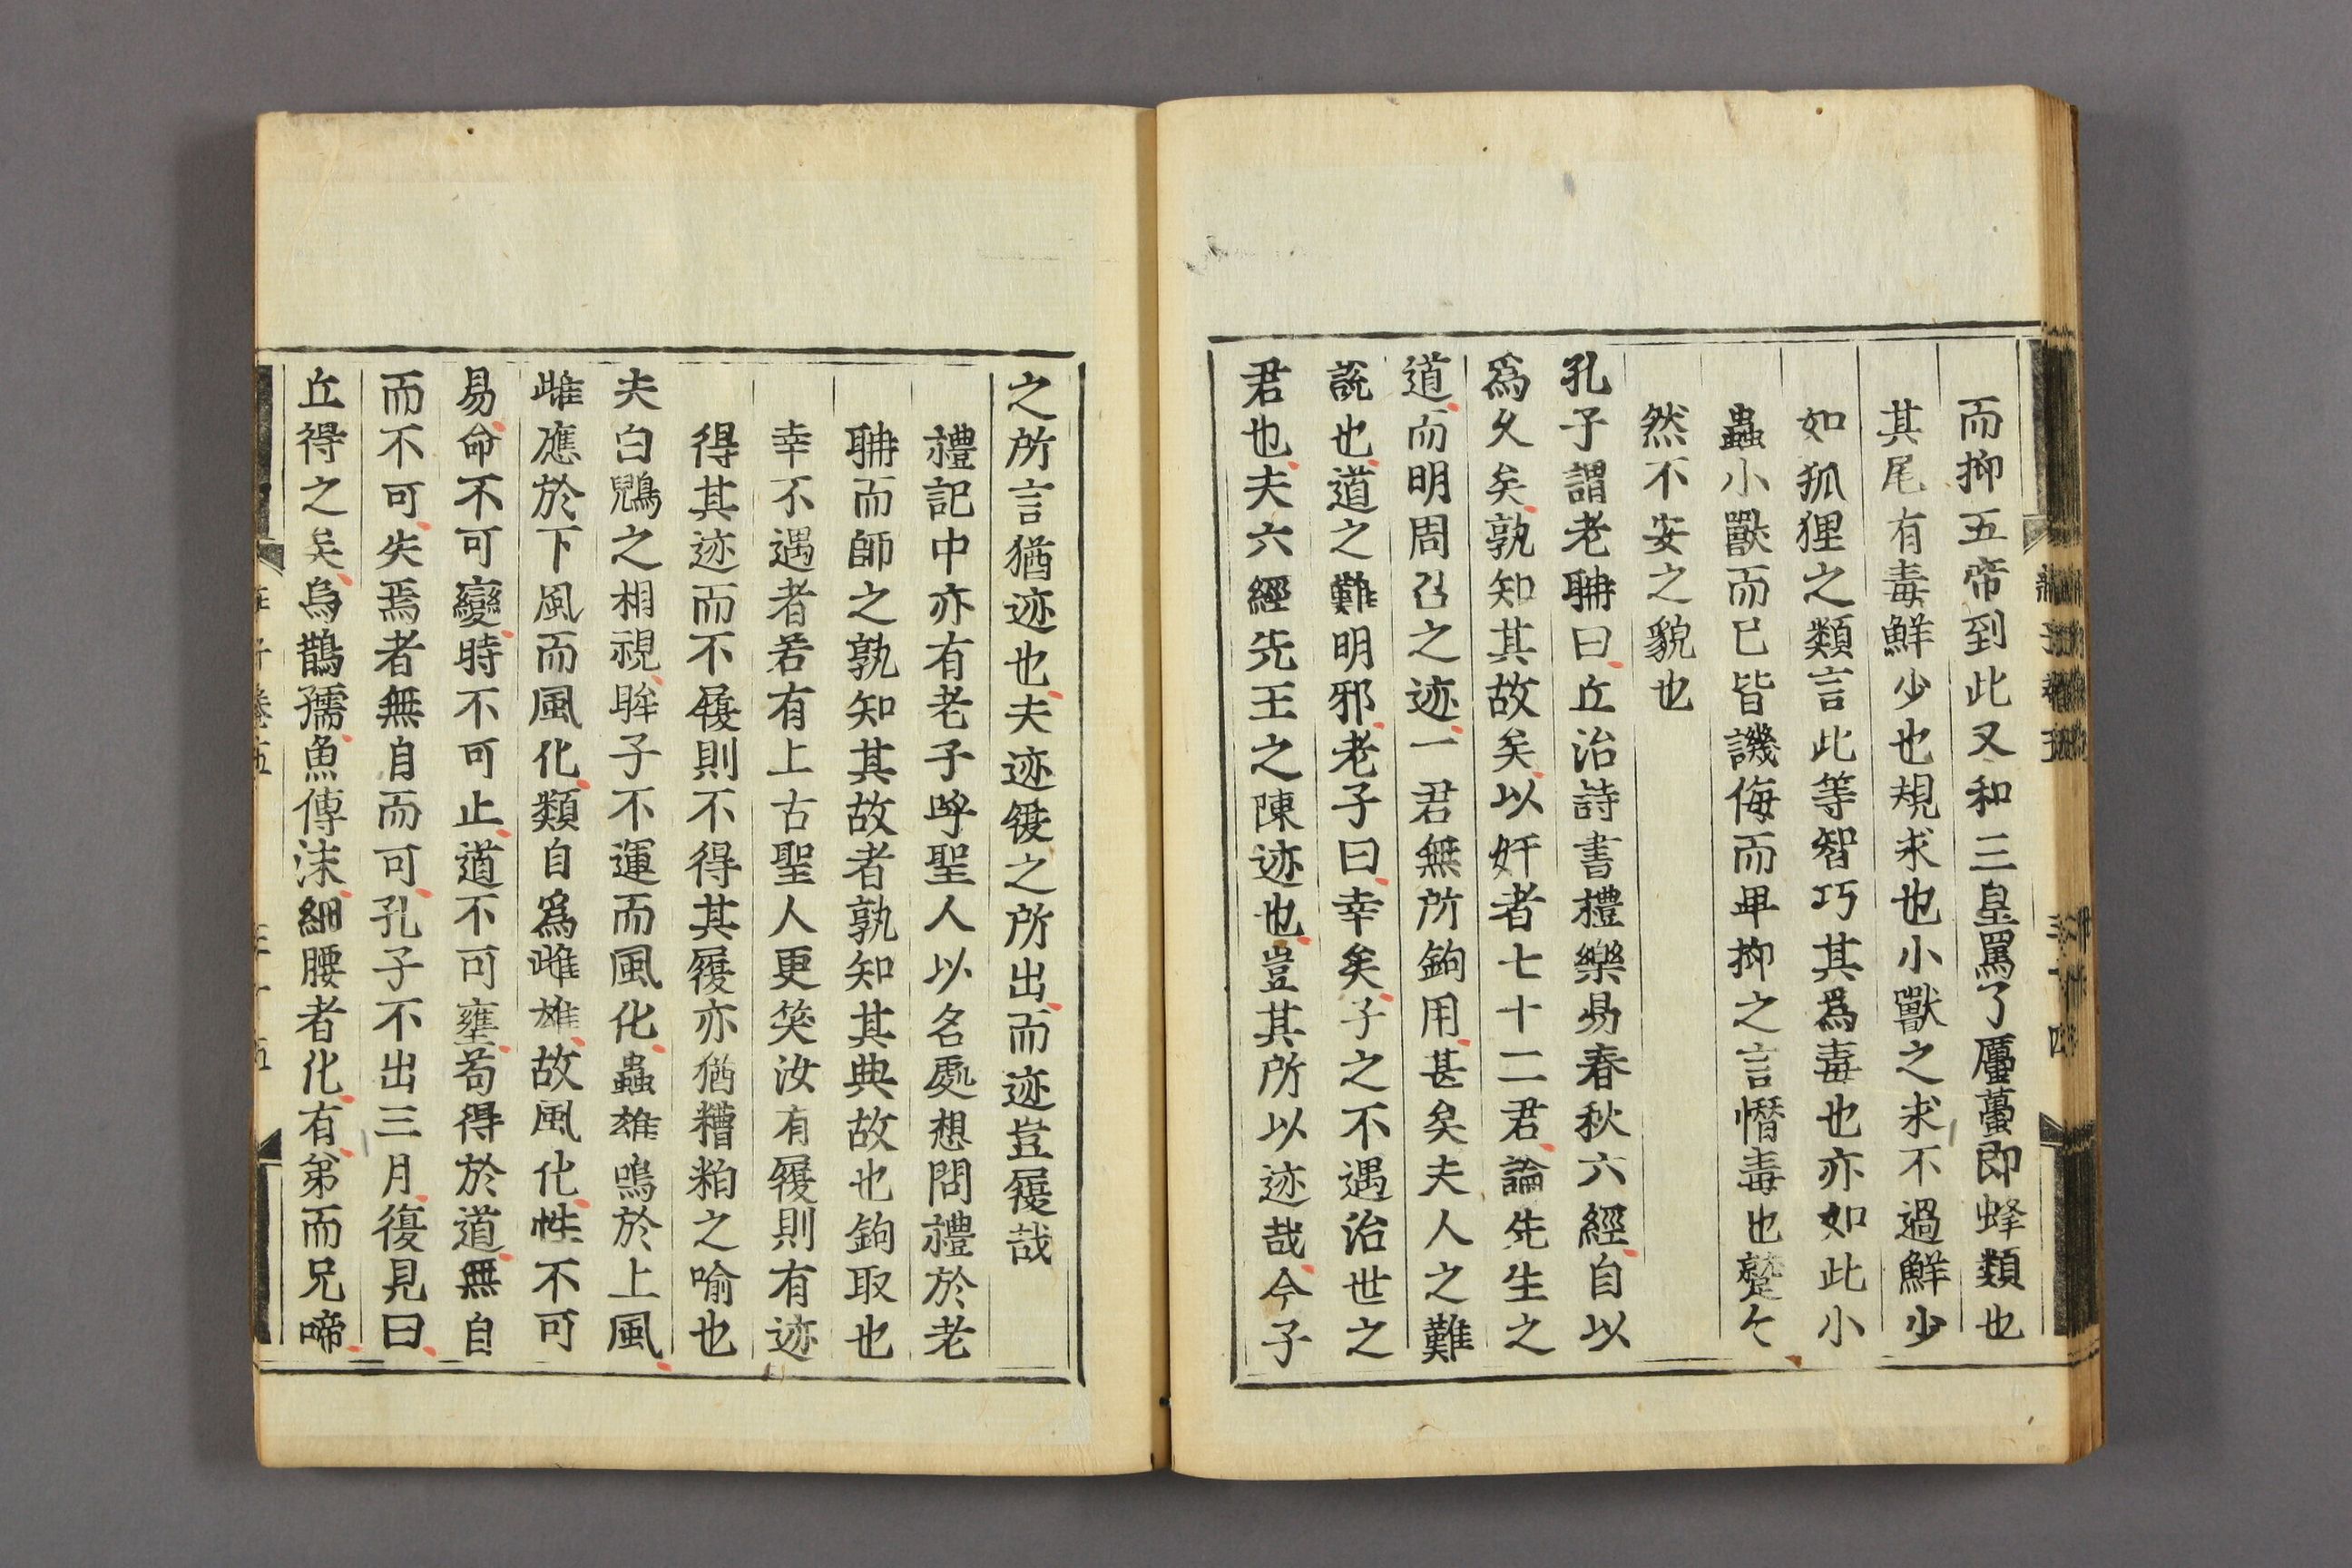 而抑五帝到此又和三皇罵了蠆即蜂類也
其尾有毒鮮少也規求也小獸之求不過鮮少
如狐狸之類言此等智巧其爲毒也亦如此小
蟲小獸而已皆譏侮而卑抑之言憯毒也蹵〻
然不安之貌也
孔子謂老聃曰丘治詩書禮樂易春秋六經自以
爲久矣孰知其故矣以奸者七十二君論先生之
道而明周召之迹一君無所鉤用甚矣夫人之難
說也道之難明邪老子曰幸矣子之不遇治世之
君也夫六經先王之陳迹也豈其所以迹哉今子
之所言猶迹也夫迹履之所出而迹豈履哉
禮記中亦有老子呼聖人以名處想問禮於老
聃而師之孰知其故者孰知其典故也鉤取也
幸不遇者若有上古聖人更笑汝有履則有迹
得其迹而不履則不得其履亦猶糟粕之喻也
夫白鶂之相視眸子不運而風化蟲雄鳴於上風
雌應於下風而風化類自爲雌雄故風化性不可
易命不可變時不可止道不可壅苟得於道無自
而不可失焉者無自而可孔子不出三月復見曰
丘得之矣烏鵲孺魚傅沫細腰者化有弟而兄啼
莊子卷五
三十五